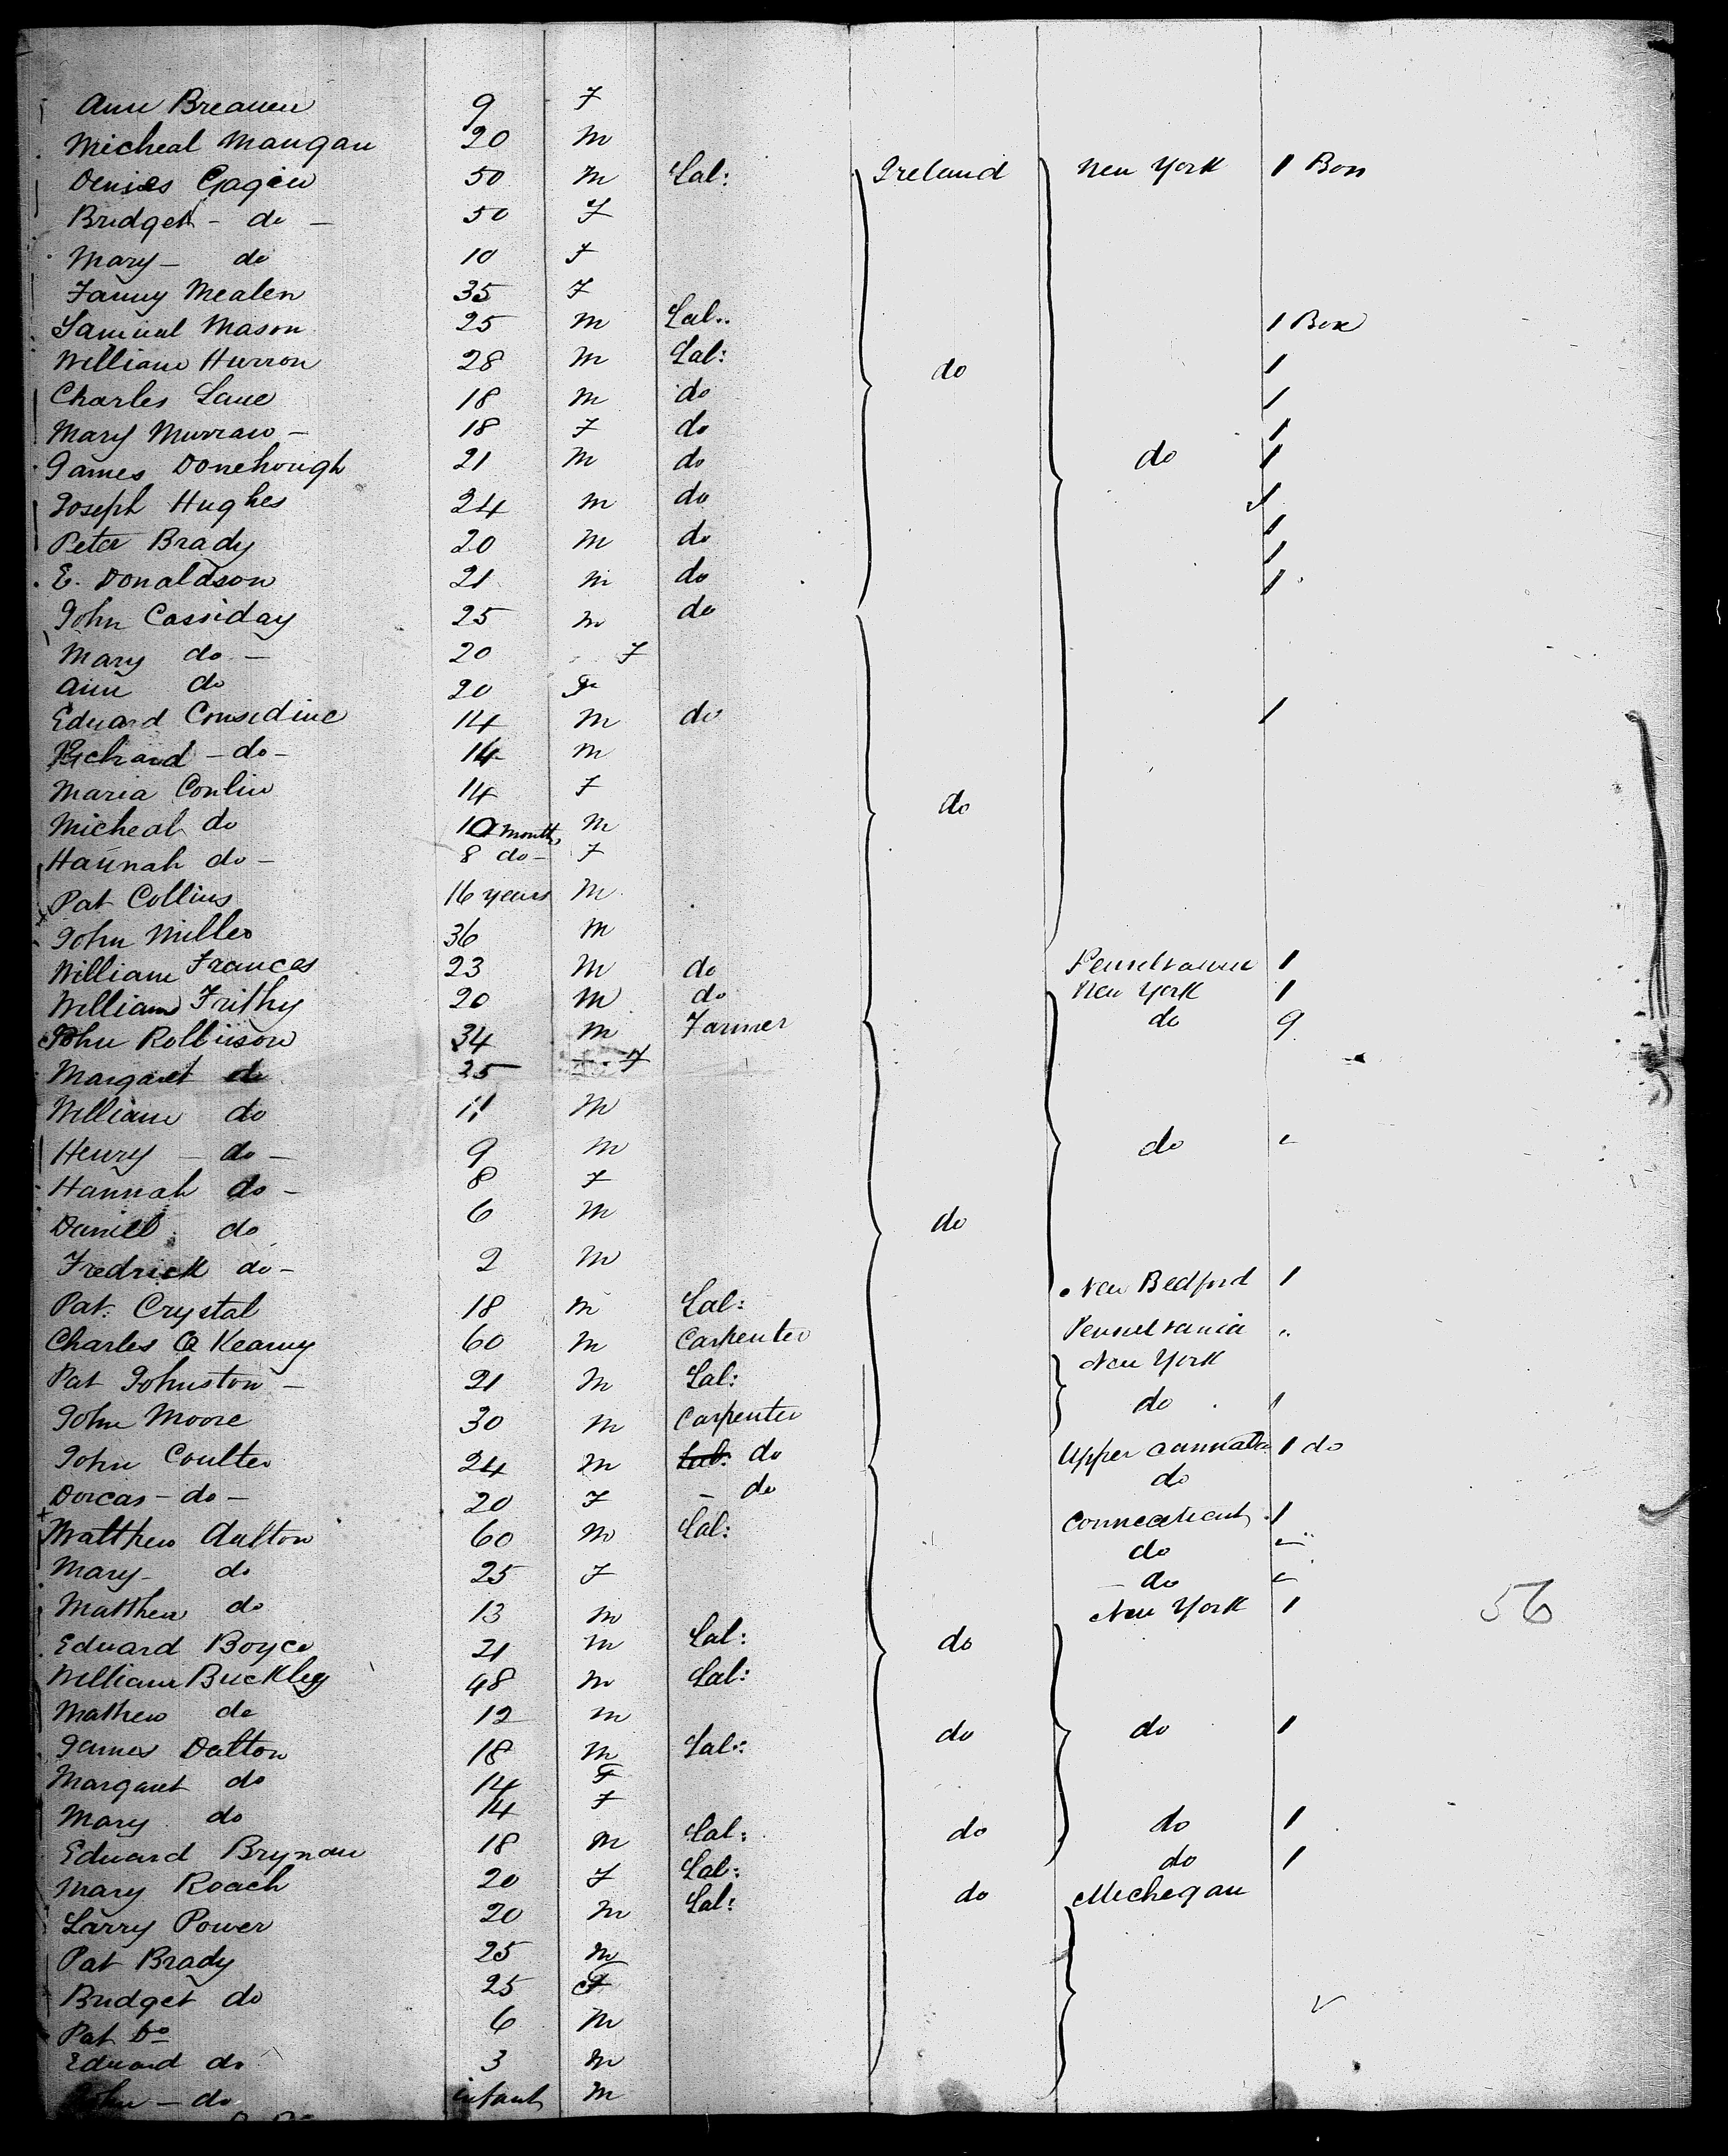 Ann Breauen 9 F
Micheal Mangan 20 M
Denies Gagen 50 M Lal: Ireland New York 1 Box
Bridget - do - 50 F
Mary - do 10 F
Fanny Mealen 35 F
Samual Mason 25 M Lal.. 1 Box
William Hurron 28 M Lal: do 1
Charles Lane 18 M do 1
Mary Murraw - 18 F do 1
James Donehough 21 M do do 1
Joseph Hughes 24 M do 1
Peter Brady 20 M do 1
E. Donaldson 21 M do 1
John Cassiday 25 M do 1
Mary do - 20 F
Ann do 20 F
Edward Consedine 14 M do 1
Richard - do - 14 M
Maria Conlin 14 F do
Micheal do 10 months M
Hannah do - 8 do - F
Pat Collins 16 years M
John Miller 36 M
William Frances 23 M do 1
William Frithy 20 M do New York 1
John Rollinson 34 M Farmer do 9
Margaret do 35 F
William do 11 M
Henry - do - 9 M do
Hannah do - 8 F
Daniel do 6 M do
Fredrick do - 2 M
Pat. Crystal 18 M Lal: New Bedford 1
Charles O Kearny 60 M Carpenter Penselvania "
Pat Johnston - 21 M Lal: New York
John Moore 30 M Carpenter do 1
John Coulter 24 M Lab. do Upper Cannada 1 do
Dorcas - do - 20 F - do do
Matthew Aulton 60 M Lal: Conneeticut 1
Mary - do 25 F do
Matthew do 13 M - do
Edward Boyce 21 M Lal: do New York 1
William Buckley 48 M Lal:
Mathew do 12 M
James Dalton 18 M Lal: do do 1
Margaret do 14 F
Mary do 14 F
Edward Brynan 18 M Lal: do do 1
Mary Roach 20 F Lal: do 1
Larry Power 20 M Lal: do Mechegan
Pat Brady 25 M
Bridget do 25 F
Pat Do 6 M
Edward do 3 M
John - do infant M
56